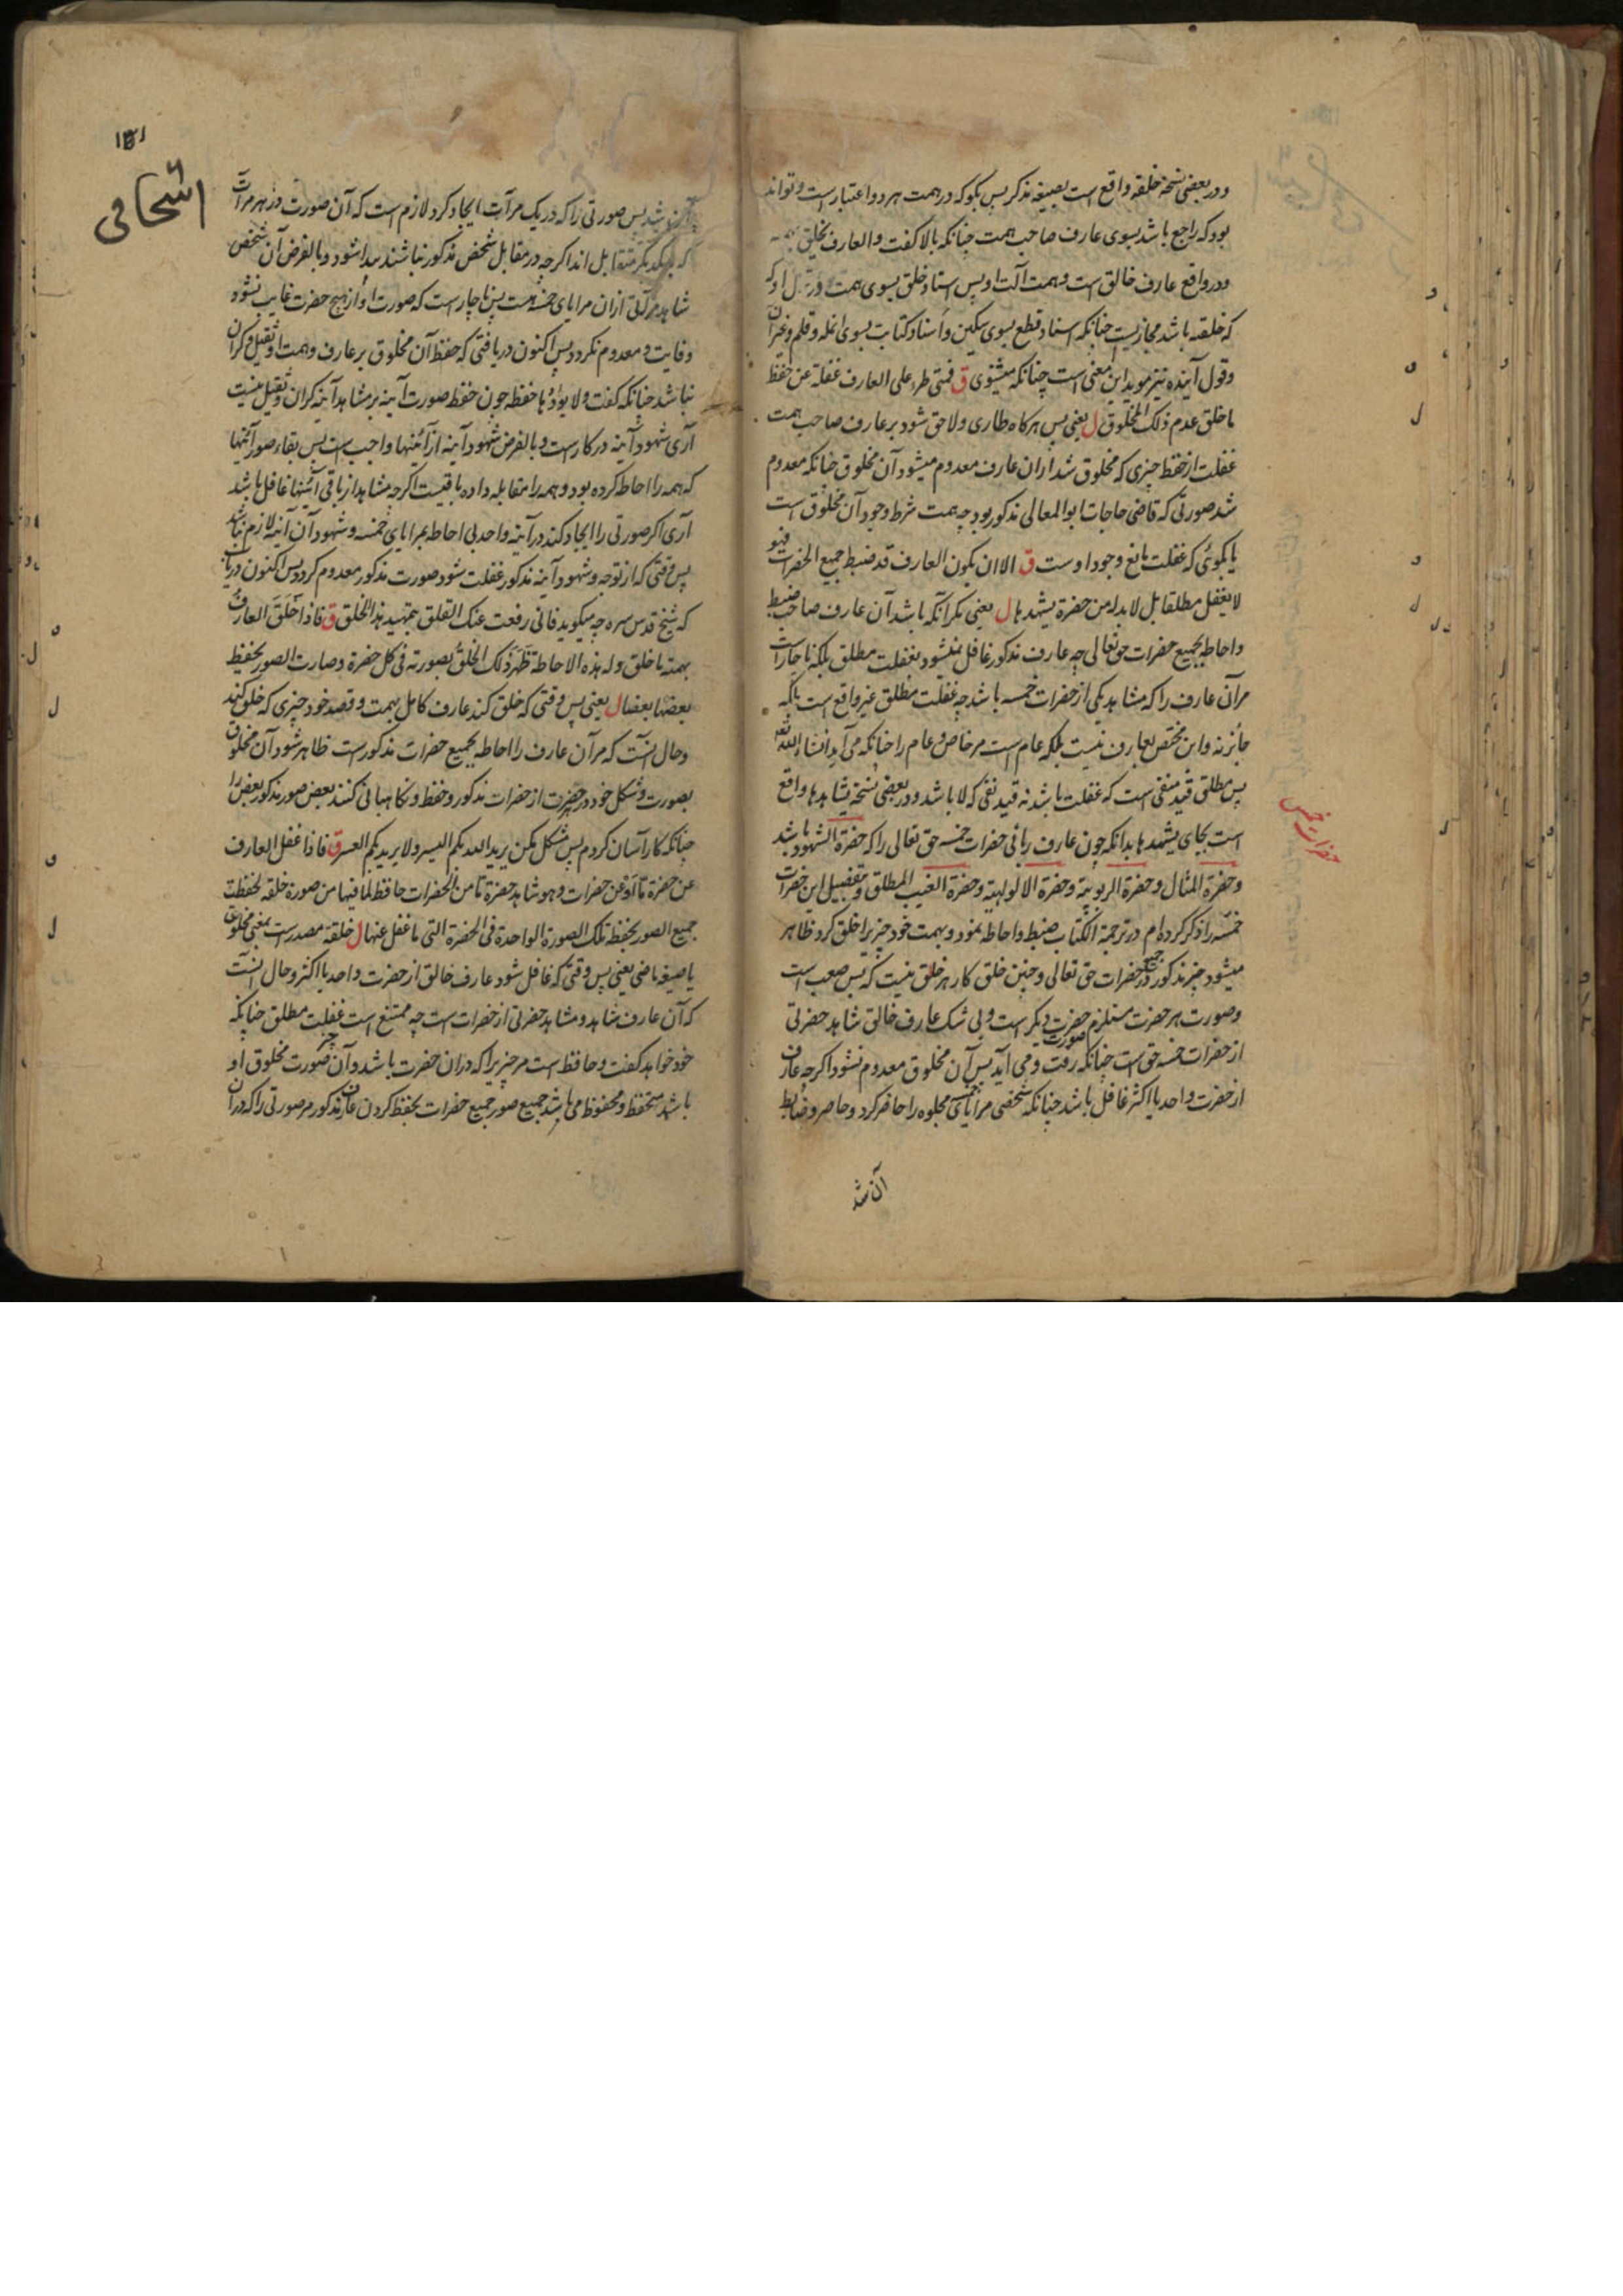 ودر بعضی نسخه خلقه واقع است بصیغه مذکر پس بکو که در همت هر دو اعتبار است و تواند
بود که راجع باشد بسوی عارف صاحب همت چنانکه بالا کفت والعارف یخلق بهمته
ودر واقع عارف خالق است و همت آلت او پس اسناد خلق بسوی همت در قول او که
که خلقته باشد مجازیست چنانکه اسناد قطع بسوی سکین و اسناد کتابت بسوی انمله وقلم وغیر آن
وقول آینده نیز موید این معنی است چنانکه میشنوی ق فمتی طرء علی العارف غفلة عن حفظ
ما خلق عدم ذلک المخلوق ل یعنی پس هر کاه طاری ولاحق شود بر عارف صاحب همت
غفلت از حفظ چیزی که مخلوق شد ازان عارف معدوم میشود آن مخلوق چنانکه معدوم
شد صورتی که قاضی حاجات ابوالمعالی مذکور بود چه همت شرط وجود آن مخلوق است
یا بکوئی که غفلت مانع وجود اوست ق الا ان یکون العارف قد ضبط جمیع الحضرات فهو
لا یغفل مطلقا بل لا بد له من حضرة یشهدها ل یعنی مکر آنکه باشد آن عارف صاحب ضبط
واحاطه بجمیع حضرات حق تعالی چه عارف مذکور غافل نمیشود بغفلت مطلق بلکه ناچار است
مر آن عارف را که مشاهد یکی از حضرات خمسه باشد چه غفلت مطلق غیر واقع است بلکه
جائز نه واین مختص بعارف نیست بلکه عام است مر خاص و عام را چنانکه می آید انشاء الله تعالی
پس مطلق قید منفی است که غفلت باشد نه قید نفی که لا باشد ودر بعضی نسخه یشاهدها واقع
است بجای یشهدها بدانکه چون عارف ربانی حضرات خمسه حق تعالی را که حضرة الشهود باشد
وحضرة المثال وحضرة الربوبیة وحضرة الالوهیة وحضرة الغیب المطلق وتفصیل این حضرات
خمسه را ذکر کرده ام در ترجمة الکتاب ضبط واحاطه نمود وبهمت خود چیزیرا خلق کرد ظاهر
میشود چیز مذکور در جمیع حضرات حق تعالی وچنین خلق کار هر خلق نیست که بس صعب است
وصورت هر حضرت مستلزم صورت حضرت دیکر است وبی شک عارف خالق شاهد حضرتی
از حضرات خمسه حق است چنانکه رفت ومی آید پس آن مخلوق معدوم نشود اکرچه عارف
از حضرت واحد یا اکثر غافل باشد چنانکه شخصی مرایای خمسه مجلوه را حاضر کرد وحاصر وضابط
آن شد
حضرات خمس
۱۵۱
اسحاقی
آن شد پس صورتی را که در یک مرآت ایجاد کرد لازم است که آن صورت در هر مرآت
که بیکدیکر متقابل اند اکرچه در مقابل شخص مذکور نباشند پیدا شود وبالفرض آن شخص
شاهد مرآتی ازان مرایای خمسه هست پس ناچار است که صورت او از هیچ حضرت غایب نشود
وفایت و معدوم نکردد پس اکنون دریافتی که حفظ آن مخلوق بر عارف وهمت او ثقیل وکران
نباشد چنانکه کفت ولا یؤدها حفظه چون حفظ صورت آینه بر مشاهد آینه کران وثقیل نیست
آری شهود آینه در کار است و بالفرض شهود آینه از آئینها واجب است پس بقاء صور آئینها
که همه را احاطه کرده بود وهمه را مقابله داده باقیست اکرچه مشاهد از باقی آئینها غافل باشد
آری اکر صورتی را ایجاد کند در آینه واحد بی احاطه بمرایای خمسه وشهود آن آینه لازم نباشد
پس وقتی که از توجه وشهود آینه مذکور غفلت شود صورت مذکور معدوم کردد پس اکنون دریاب
که شیخ قدس سره چه میکوید فانی رفعت عنک القلق بتمهید هذا الخلق ق فاذا خلق العارف
بهمته ما خلق وله هذه الاحاطة ظهر ذلک الخلق بصورته فی کل حضرة وصارت الصور یحفظ
بعضها بعضا ل یعنی پس وقتی که خلق کند عارف کامل بهمت وقصد خود چیزی که خلق کند
وحال آنست که مر آن عارف را احاطه بجمیع حضرات مذکور است ظاهر شود آن مخلوق
بصورت وشکل خود در هر حضرت از حضرات مذکور وحفظ ونکاهبانی کنند بعض صور مذکور بعض را
چنانکه کار آسان کردم پس مشکل مکن یرید الله بکم الیسر ولا یرید بکم العسر ق فاذا غفل العارف
عن حضرة ما او عن حضرات وهو شاهد حضرة ما من الحضرات حافظ لما فیها من صورة خلقه انحفظت
جمیع الصور بحفظ تلک الصورة الواحدة فی الحضرة التی ما غفل عنها ل خلقه مصدر است بمعنی مخلوق
یا صیغه ماضی یعنی پس وقتی که غافل شود عارف خالق از حضرت واحد یا اکثر وحال آنست
که آن عارف شاهد ومشاهد حضرتی از حضرات است چه ممتنع است غفلت مطلق چنانکه
خود خواهد کفت وحافظ است مر چیزیرا که دران حضرت باشد وآن چیز صورت مخلوق او
باشد منحفظ ومحفوظ می باشد جمیع صور جمیع حضرات بحفظ کردن عارف مذکور مر صورتی را که در آن